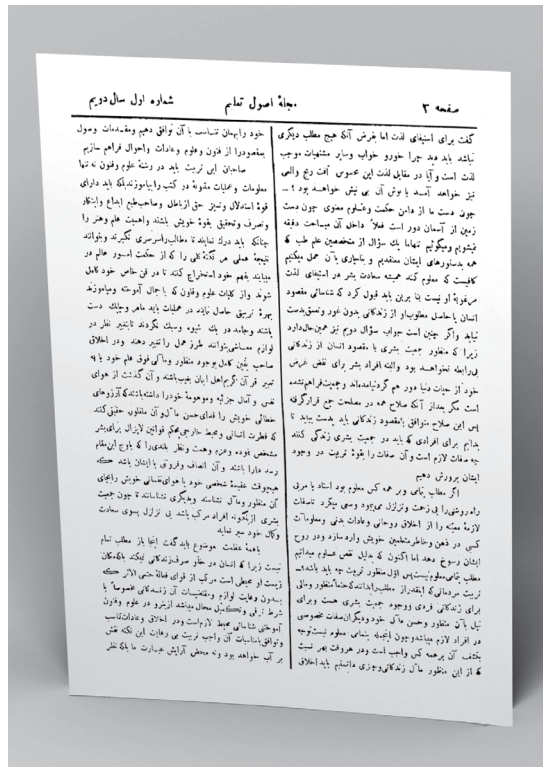 صفحه ۳
مجلهٔ اصول تعلیم
شماره اول سال دویم
گفت برای استیفای لذت اما بفرض آنکه هیچ مطلب دیگری
نباشد باید دید چرا خورو خواب وسایر مشتهیات موجب
لذت است و آیا در مقابل لذت این محسوس آفت رنج والمی
نیز خواهد آمد یا نوش آن بی نیش خواهد بود ؟ ـ
چون دست ما از دامن حکمت وعلوم معنوی چون دست
زمین از آسمان دور است فعلا داخل آن مباحث دقیقه
نمیشویم ومیگوئیم تنها یک سؤال از متخصصین علم طب که
همه بدستورهای ایشان معتقدیم و بناچاری بآن عمل میکنیم
کافیست که معلوم کند همیشه سعادت بشر در استیفای لذت
مرغوبهٔ او نیست بنا برین باید قبول کرد که شناسائی مقصود
انسان یا حاصل مطلوب او از زندگانی بدون غور وتعمق بدست
نیاید واگر چنین است جواب سؤال دویم نیز همین حال دارد
زیرا که منظور جمعیت بشری با مقصود انسان از زندگانی
بی رابطه نخواهد بود والبته افراد بشر برای نقض غرض
خود از حیات دنیا دور هم گرد نیامده‌اند وجمعیت فراهم نشده
است مگر بعد از آنکه صلاح همه در مصلحت جمع قرار گرفته
پس این صلاح متوافق با مقصود زندگانی باید بدست بیاید تا
بدانیم برای افرادی که باید در جمعیت بشری زندگی کنند
چه صفات لازم است و آن صفات را بقوهٔ تربیت در وجود
ایشان پرورش دهیم
اگر مطلب بتمامی وبر همه کس معلوم بود استاد یا مربی
راه روشنی را بی زحمت وتزلزل می‌پیمود وسعی میکرد تا صفات
لازمهٔ معینه را از اخلاق روحانی وعادات بدنی ومعلومات
کسی در ذهن وخاطر متعلمین خویش وارد سازد ودر روح
ایشان رسوخ دهد اما اکنون که بدلیل نقص علوم میدانیم
مطلب بتمامی معلوم نیست پس اول منظور تربیت چه باید باشد؟ ـ
تربیت مردمانی که اینقدر از مطلب را بدانند که حتما منظور ومالی
برای زندگانی فردی ووجود جمعیت بشری هست وبرای
نیل بآن منظور وحسن مآل خود ودیگران صفات مخصوصی
در افراد لازم میباشد وچون اینجمله بتمامی معلوم نیست توجه
بکشف آن بر همه کس واجب است ودر هر وقت بهر نسبت
که از این منظور مآل زندگانی چیزی دانستیم باید اخلاق
خود را بهمان تناسب با آن توافق دهیم ومقدمات وصول
بمقصود را از فنون وعلوم وعادات واحوال فراهم سازیم
صاحبان این تربیت باید در رشتهٔ علوم وفنون نه تنها
معلومات وعملیات مدونهٔ در کتب را بیاموزند بلکه باید دارای
قوهٔ استدلال وتمیز حق از باطل وصاحب طبع ابداع وابتکار
وتصرف وتحقیق بقوهٔ خویش باشند واهمیت علم وهنر را
چنانکه باید درک نمایند تا مطالب را سرسری نگیرند وبتوانند
نتیجهٔ عملی هر نکتهٔ کلی را که از حکمت امور عالم در
میابند بفهم خود استخراج کنند تا در فن خاص خود کامل
شوند واز کلیات علوم وفنون که با جمال آموخته ومیاموزند
بهرهٔ تربیتی حاصل نمایند در عملیات باید ماهر وچابک دست
باشند وجامد در یک شیوه وسبک نگردند تا بتغییر نظر در
لوازم معاشی بتوانند طرز عمل را تغییر دهند ودر اخلاق
صاحب یقین کامل بوجود منظور ومآلی فوق علم خود یا به
تعبیر قرآن کریم اهل ایمان بغیب باشند و آن گذشت از هوای
نفس و آمال جزئیه وموهومهٔ خود را داشته باشند که آرزوهای
خطائی خویش را فدای حسن مآل و آن منظور حقیقی کنند
که فطرت انسانی ومحیط خارجی بحکم قوانین لایزال برای بشر
مشخص نموده وعزم وهمت ونظر بلندی را که باوج این مقام
رسد دارا باشند و آن انصاف وفروتنی با ایشان باشد که
هیچوقت عقیدهٔ شخصی خود یا هوای نفسانی خویش را بجای
آن منظور ومآل نشناسند وبدیگری نشناسانند تا چون جمعیت
بشری ازینگونه افراد مرکب باشد بی تزلزل بسوی سعادت
وکمال خود سیر نماید
با همهٔ عظمت موضوع باید گفت اینجا باز مطلب تمام
نیست زیرا که انسان در خلو صرف زندگانی نمیکند بلکه مکان
زیست او محیطی است مرکب از قوای فعالهٔ حتمی الاثر که
بدون رعایت لوازم ومقتضیات آن زندگانی خصوصا با
شرط ترقی وتکمیل محال میباشد ازینرو در علوم وفنون
آموختنی شناسائی محیط لازم است ودر اخلاق وعادات تناسب
وتوافق با مناسبات آن واجب تربیت بی رعایت این نکته نقش
بر آب خواهد بود ونه محض آرایش عبارت ما بلکه نظر